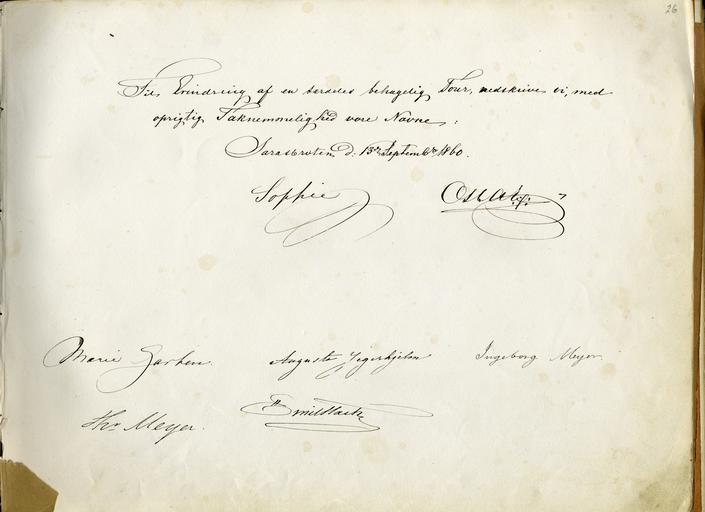 26
Til Erindring af en særdeles behagelig Tour, nedskrive vi, med
oprigtig Taknemmelighed vore Navne:
d: 15de September 1860.
Sophie Oscar
Marie Auguste Jegerhjelm Ingeborg Meyer.
Ths Meyer. Emil